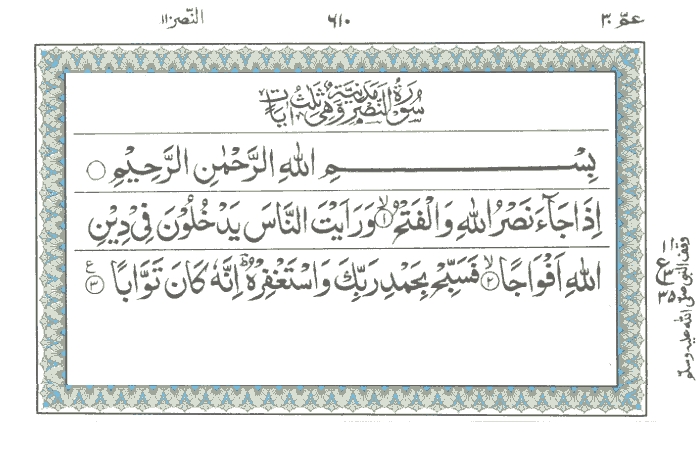 عمّ ٣٠ ٦١٠ النّصر ١١٠
سُوْرَةُ النَّصْرِ مَدَنِيَّةٌ وَّهِيَ ثَلٰثُ اٰيَاتٍ
بِسْمِ اللهِ الرَّحْمٰنِ الرَّحِيْمِ
اِذَا جَآءَ نَصْرُ اللهِ وَالْفَتْحُ ۙ﴿١﴾ وَرَاَيْتَ النَّاسَ يَدْخُلُوْنَ فِيْ دِيْنِ
اللهِ اَفْوَاجًا ۙ﴿٢﴾ فَسَبِّحْ بِحَمْدِ رَبِّكَ وَاسْتَغْفِرْهُ ؕ اِنَّهٗ كَانَ تَوَّابًا ﴿٣﴾ ع
ع
٣
٣٥
وقف النبي صلى الله عليه وسلم